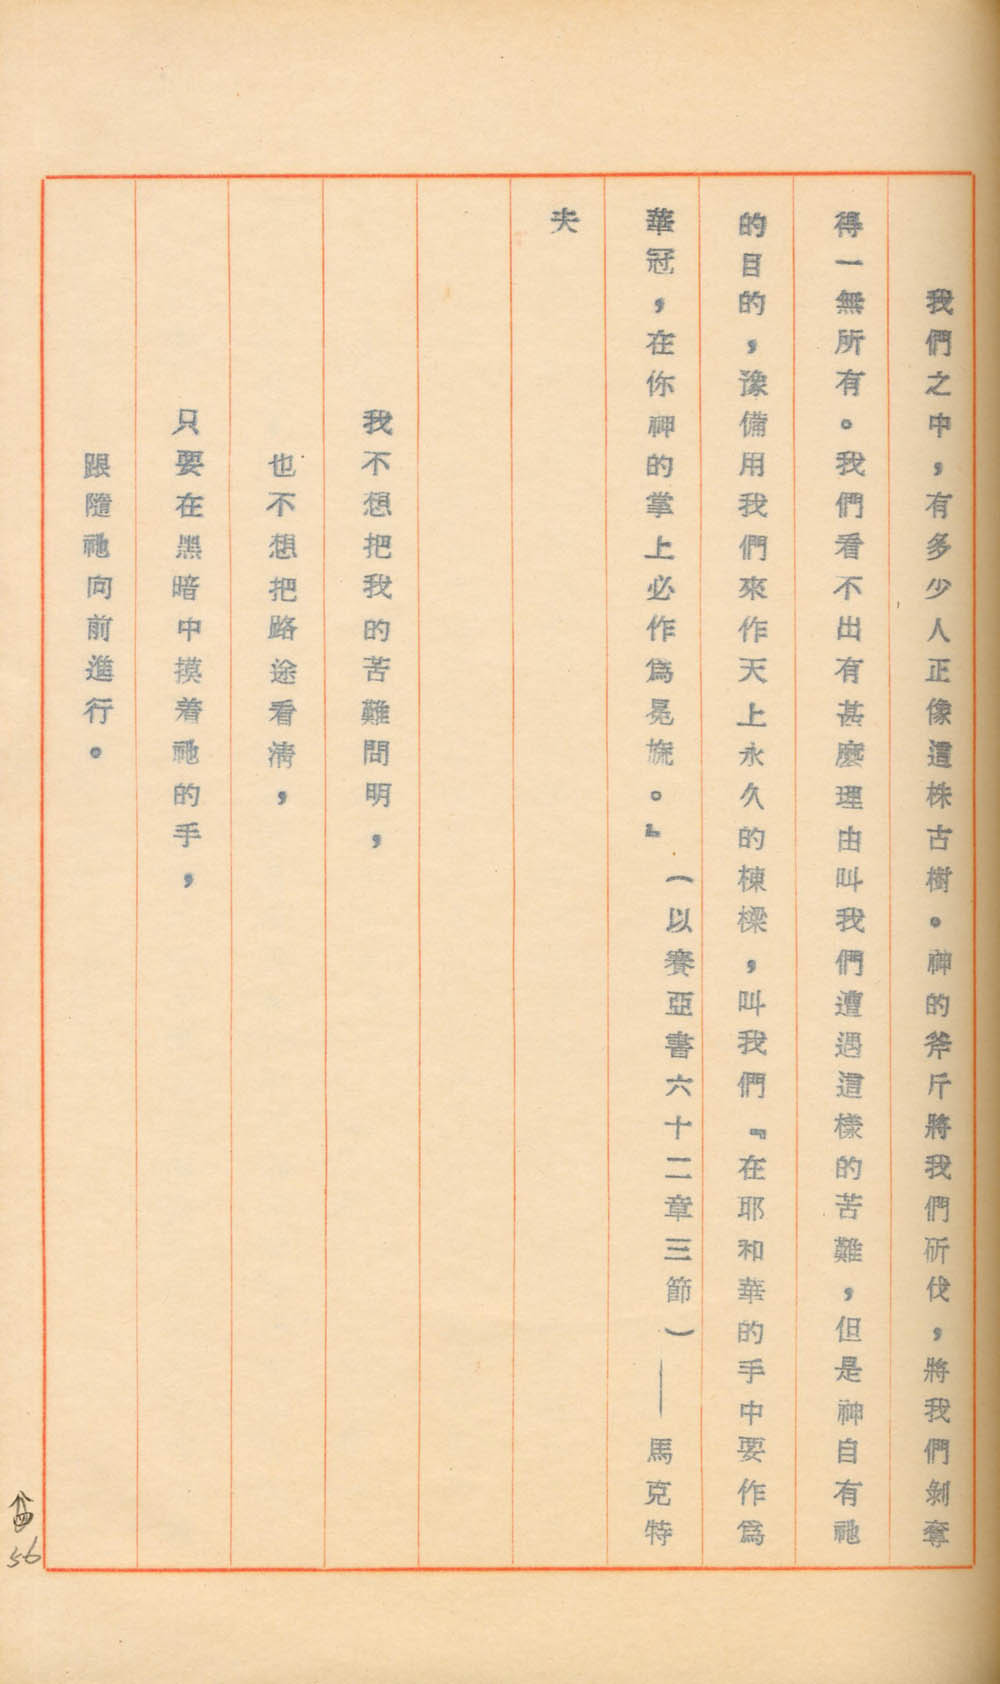 我們之中，有多少人正像這株古樹。神的斧斤將我們斫伐，將我們剝奪
得一無所有。我們看不出有甚麼理由叫我們遭遇這樣的苦難，但是神自有祂
的目的，豫備用我們來作天上永久的棟樑，叫我們『在耶和華的手中要作為
華冠，在你神的掌上必作為冕旒。』（以賽亞書六十二章三節）——馬克特
夫
我不想把我的苦難問明，
也不想把路途看清，
只要在黑暗中摸着祂的手，
跟隨祂向前進行。
56